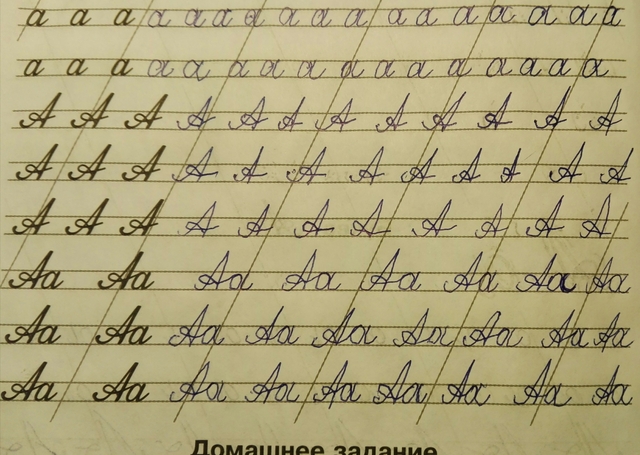 а а а а а а а а а а а а а а а а а
а а а а а а а а а а а а а а а а
А А А А А А А А А А А А
А А А А А А А А А А А А
А А А А А А А А А А А
Аа Аа Аа Аа Аа Аа Аа Аа
Аа Аа Аа Аа Аа Аа Аа Аа Аа
Аа Аа Аа Аа Аа Аа Аа Аа Аа
Домашнее задание